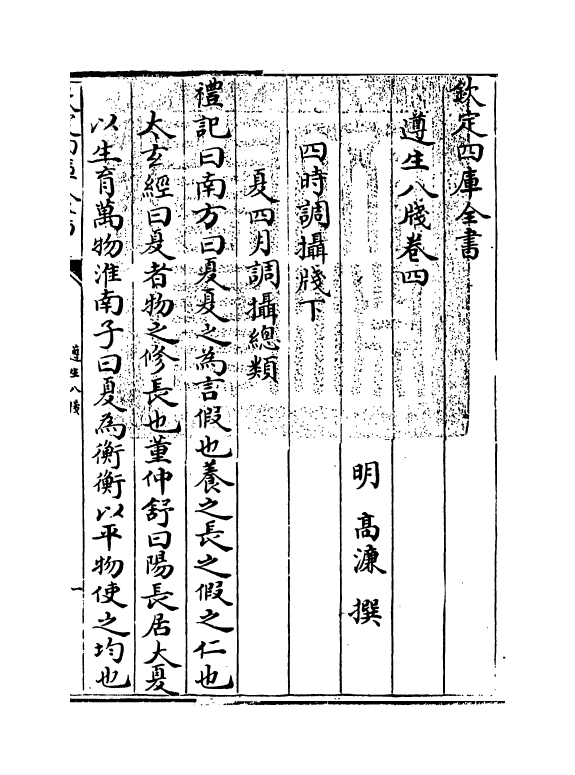 欽定四庫全書
遵生八牋卷四
明 高濂 撰
四時調攝牋下
夏四月調攝總類
禮記曰南方曰夏夏之為言假也養之長之假之仁也
太玄經曰夏者物之修長也董仲舒曰陽長居大夏
以生育萬物淮南子曰夏為衡衡以平物使之均也
遵生八牋
一